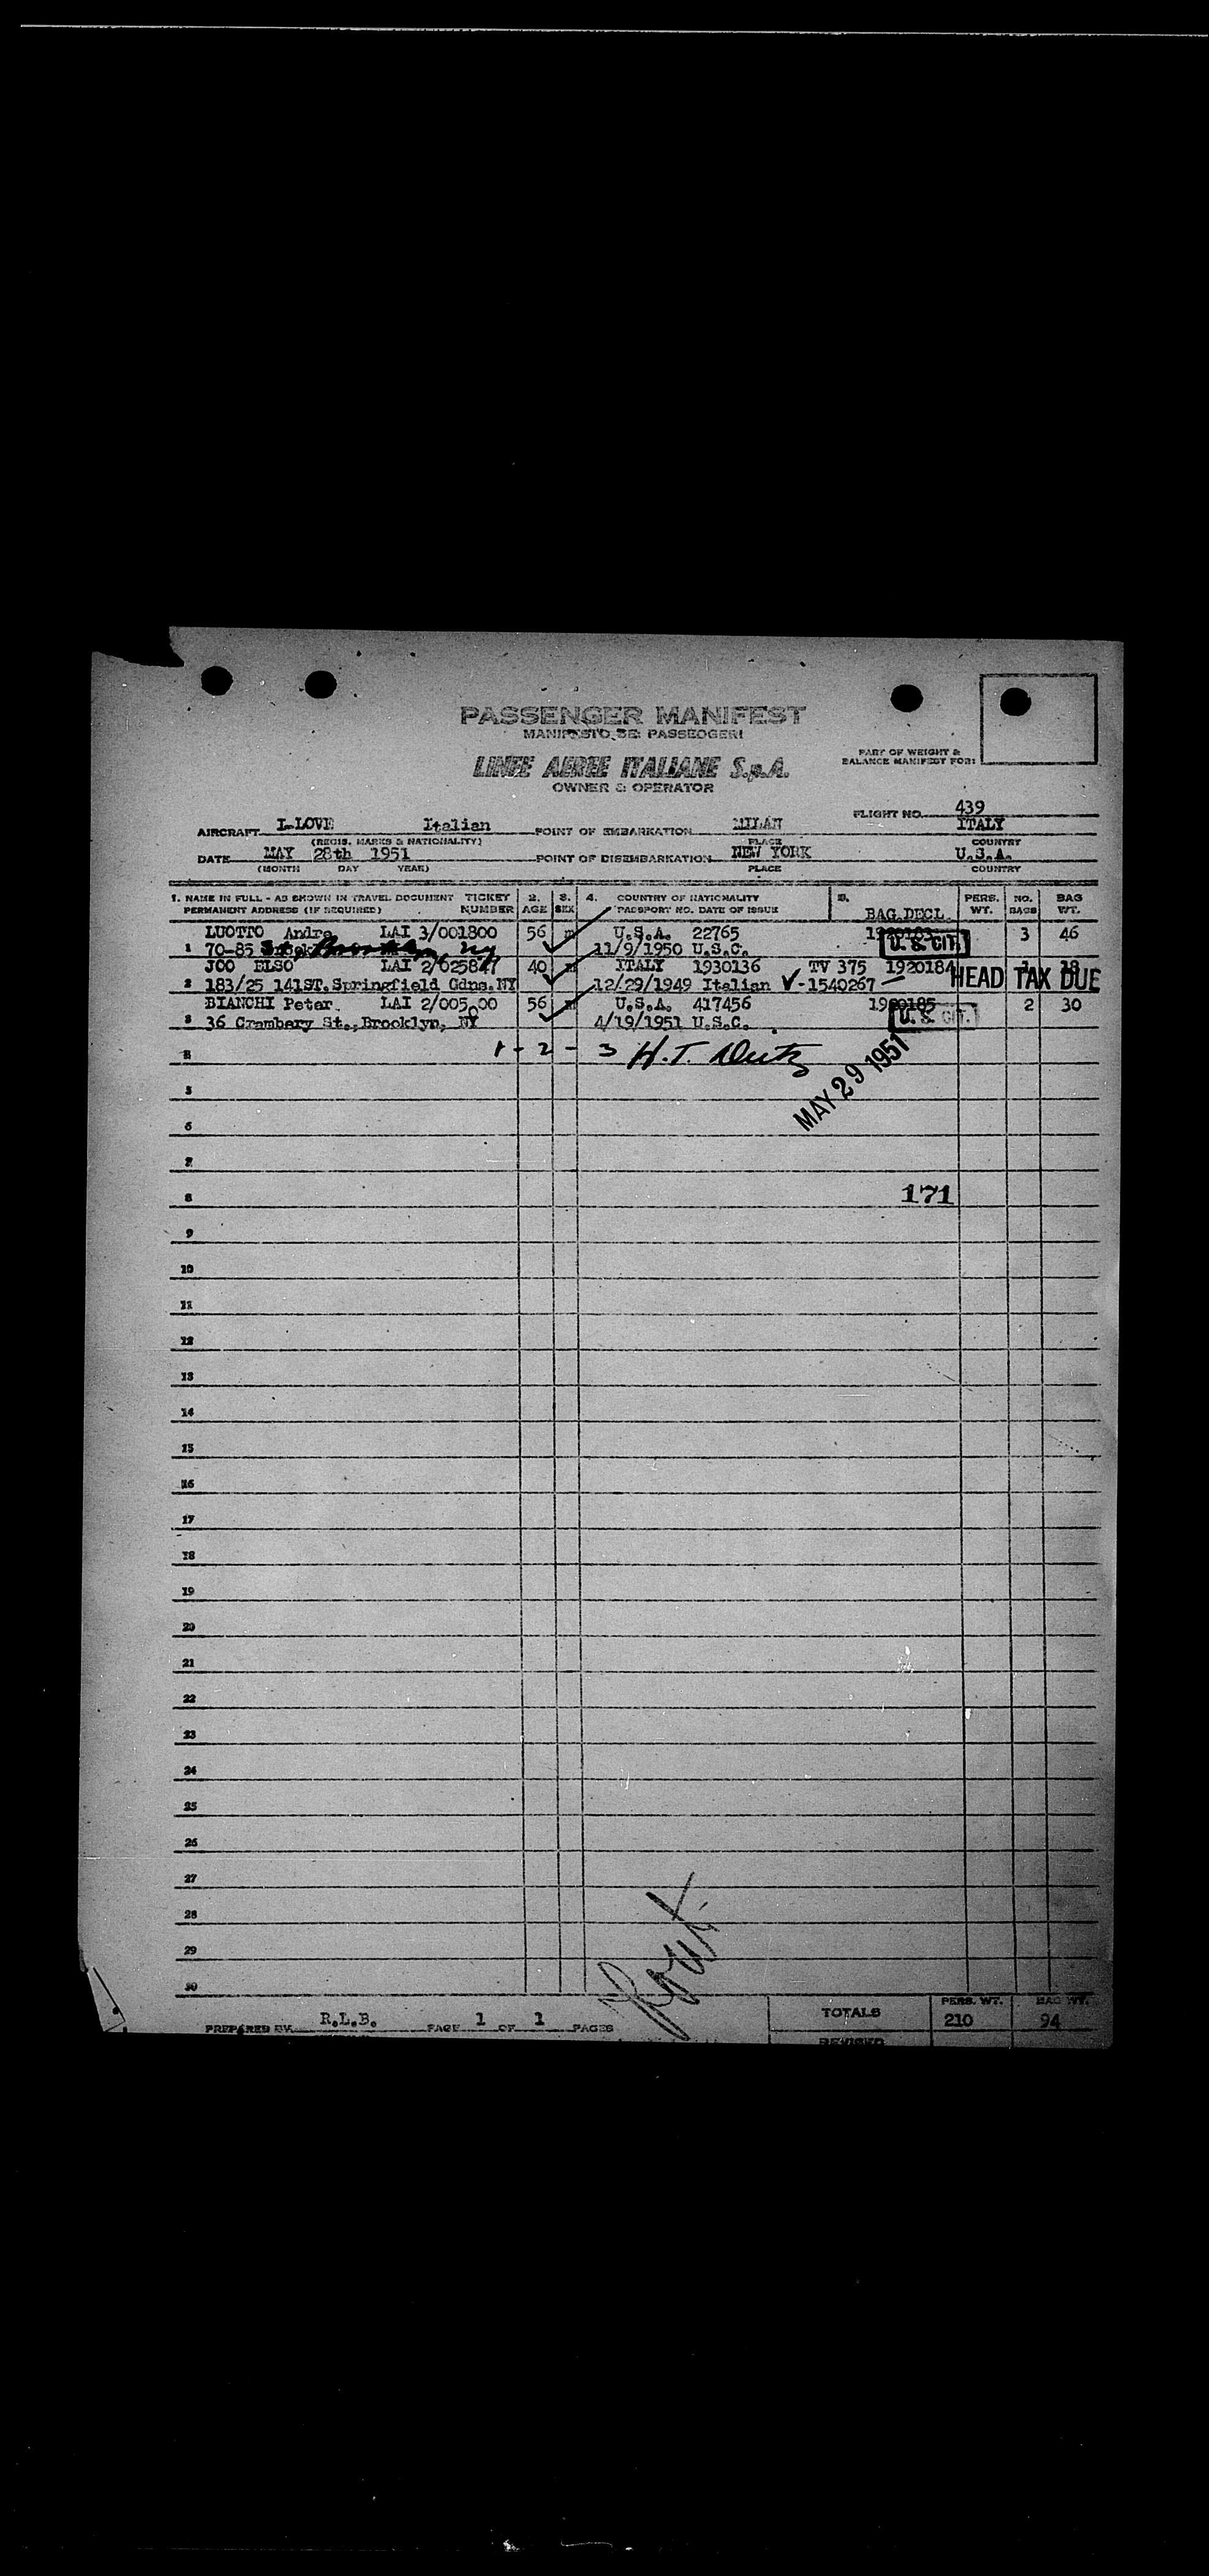 PASSENGER MANIFEST
MANIFESTO DEI PASSEGGERI
LINEE AEREE ITALIANE S.p.A.
OWNER & OPERATOR
PART OF WEIGHT &
BALANCE MANIFEST FOR:
FLIGHT NO. 439
AIRCRAFT I-LOVE Italian POINT OF EMBARKATION MILAN ITALY
(REGIS. MARKS & NATIONALITY) PLACE COUNTRY
DATE MAY 28th 1951 POINT OF DISEMBARKATION NEW YORK U.S.A.
(MONTH DAY YEAR) PLACE COUNTRY
1. NAME IN FULL - AS SHOWN IN TRAVEL DOCUMENT TICKET 2. 3. 4. COUNTRY OF NATIONALITY 5. PERS. NO. BAG
PERMANENT ADDRESS (IF REQUIRED) NUMBER AGE SEX PASSPORT NO. DATE OF ISSUE BAG.DECL. WT. BAGS WT.
LUOTTO Andre LAI 3/001800 56 m U.S.A. 22765 3 46
1 70-85 Brooklyn NY 11/9/1950 U.S.C. U. S. CIT.
JOO ELSO LAI 2/625847 40 m ITALY 1930136 TV 375 1920184 1 18
2 183/25 141ST.Springfield Gdns.NY 12/29/1949 Italian V-1540267 HEAD TAX DUE
BIANCHI Peter LAI 2/005,00 56 m U.S.A. 417456 1920185 2 30
3 36 Crambery St.,Brooklyn, NY 4/19/1951 U.S.C. U. S. CIT.
4 1 - 2 - 3 H.T.
MAY 29 1951
5
6
7
8 171
9
10
11
12
13
14
15
16
17
18
19
20
21
22
23
24
25
26
27
28
29
30
PREPARED BY R.L.B. PAGE 1 OF 1 PAGES TOTALS PERS. WT. 210 BAG WT. 94
REVISED